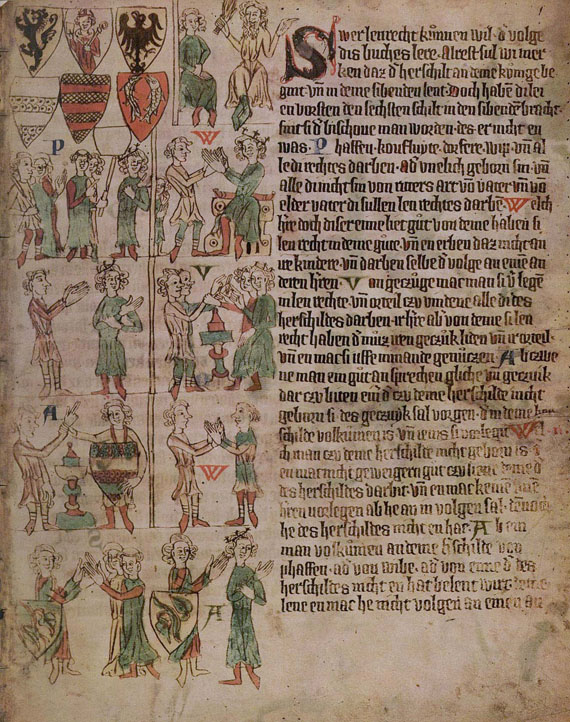 Swer lenrecht kunnen wil d' volge
dis buches lere. Alrest sul wir mer
ken daz d' herschilt an deme kunige be
gint vn in deme sibenden lent. Doch haben di lei
en vorsten den sechsten schilt in den sibenden bracht
sint si d' bischove man worden des er nicht en
was. Phaffen koufluyte. dorfere. wip. vn al
le di rechtes darben. ad' unelich geborn sin. vn
alle di nicht sin von ritters art von vater vn vo
elder vater di sullen len rechtes darbe. Welch
h're doch diser eime liet gut von deme haben si
len recht in deme gute. vn en erben daz nicht an
ire kindere. vn darben selbe d' volge an eine an
deren h'ren. Von geczuge mac man si v'legen
in len rechte. vn orteil czu vindene alle di des
herschildes darben. ir h're ab' von deme si len
recht haben d' muz iren geczuk liden vn ir orteil.
vn en mac si uffe nimande genuiczen. Ab czwe
ne man ein gut an sprechen gliche vn geczuk
dar czu biten ein' d' czu deme herschilde nicht
geborn si. des geczuk sal vorgen. d' in deme her
schilde volkumen is. vn jenis si vorlegit. Welch
ich man czu deme herschilde nicht geborn is.
en mac nicht geweigern gut czu liene deme d'
des herschildes darbit. vn en mac keinen sime
h'ren vorlegen ab he an in volgen sal. den och
he des herschildes nicht en hat. Ab ein
man volkumen an deme h'schilde von
phaffen. ad' von wibe. ad' von eime d' des
herschildes nicht en hat belent wirt. deme
lene en mac he nicht volgen an einen an
P
W
V
A
W
S
A